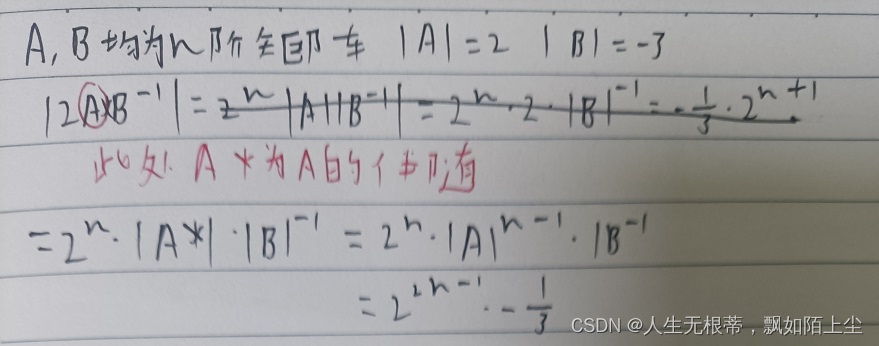 A,B均为n阶矩阵 |A|=2 |B|=-3
|2A*B⁻¹|=2ⁿ|A||B⁻¹|=2ⁿ·2·|B|⁻¹=-1/3·2ⁿ⁺¹
此处 A*为A的伴随
=2ⁿ·|A*|·|B|⁻¹=2ⁿ·|A|ⁿ⁻¹·|B⁻¹
=2²ⁿ⁻¹·-1/3
CSDN @人生无根蒂，飘如陌上尘